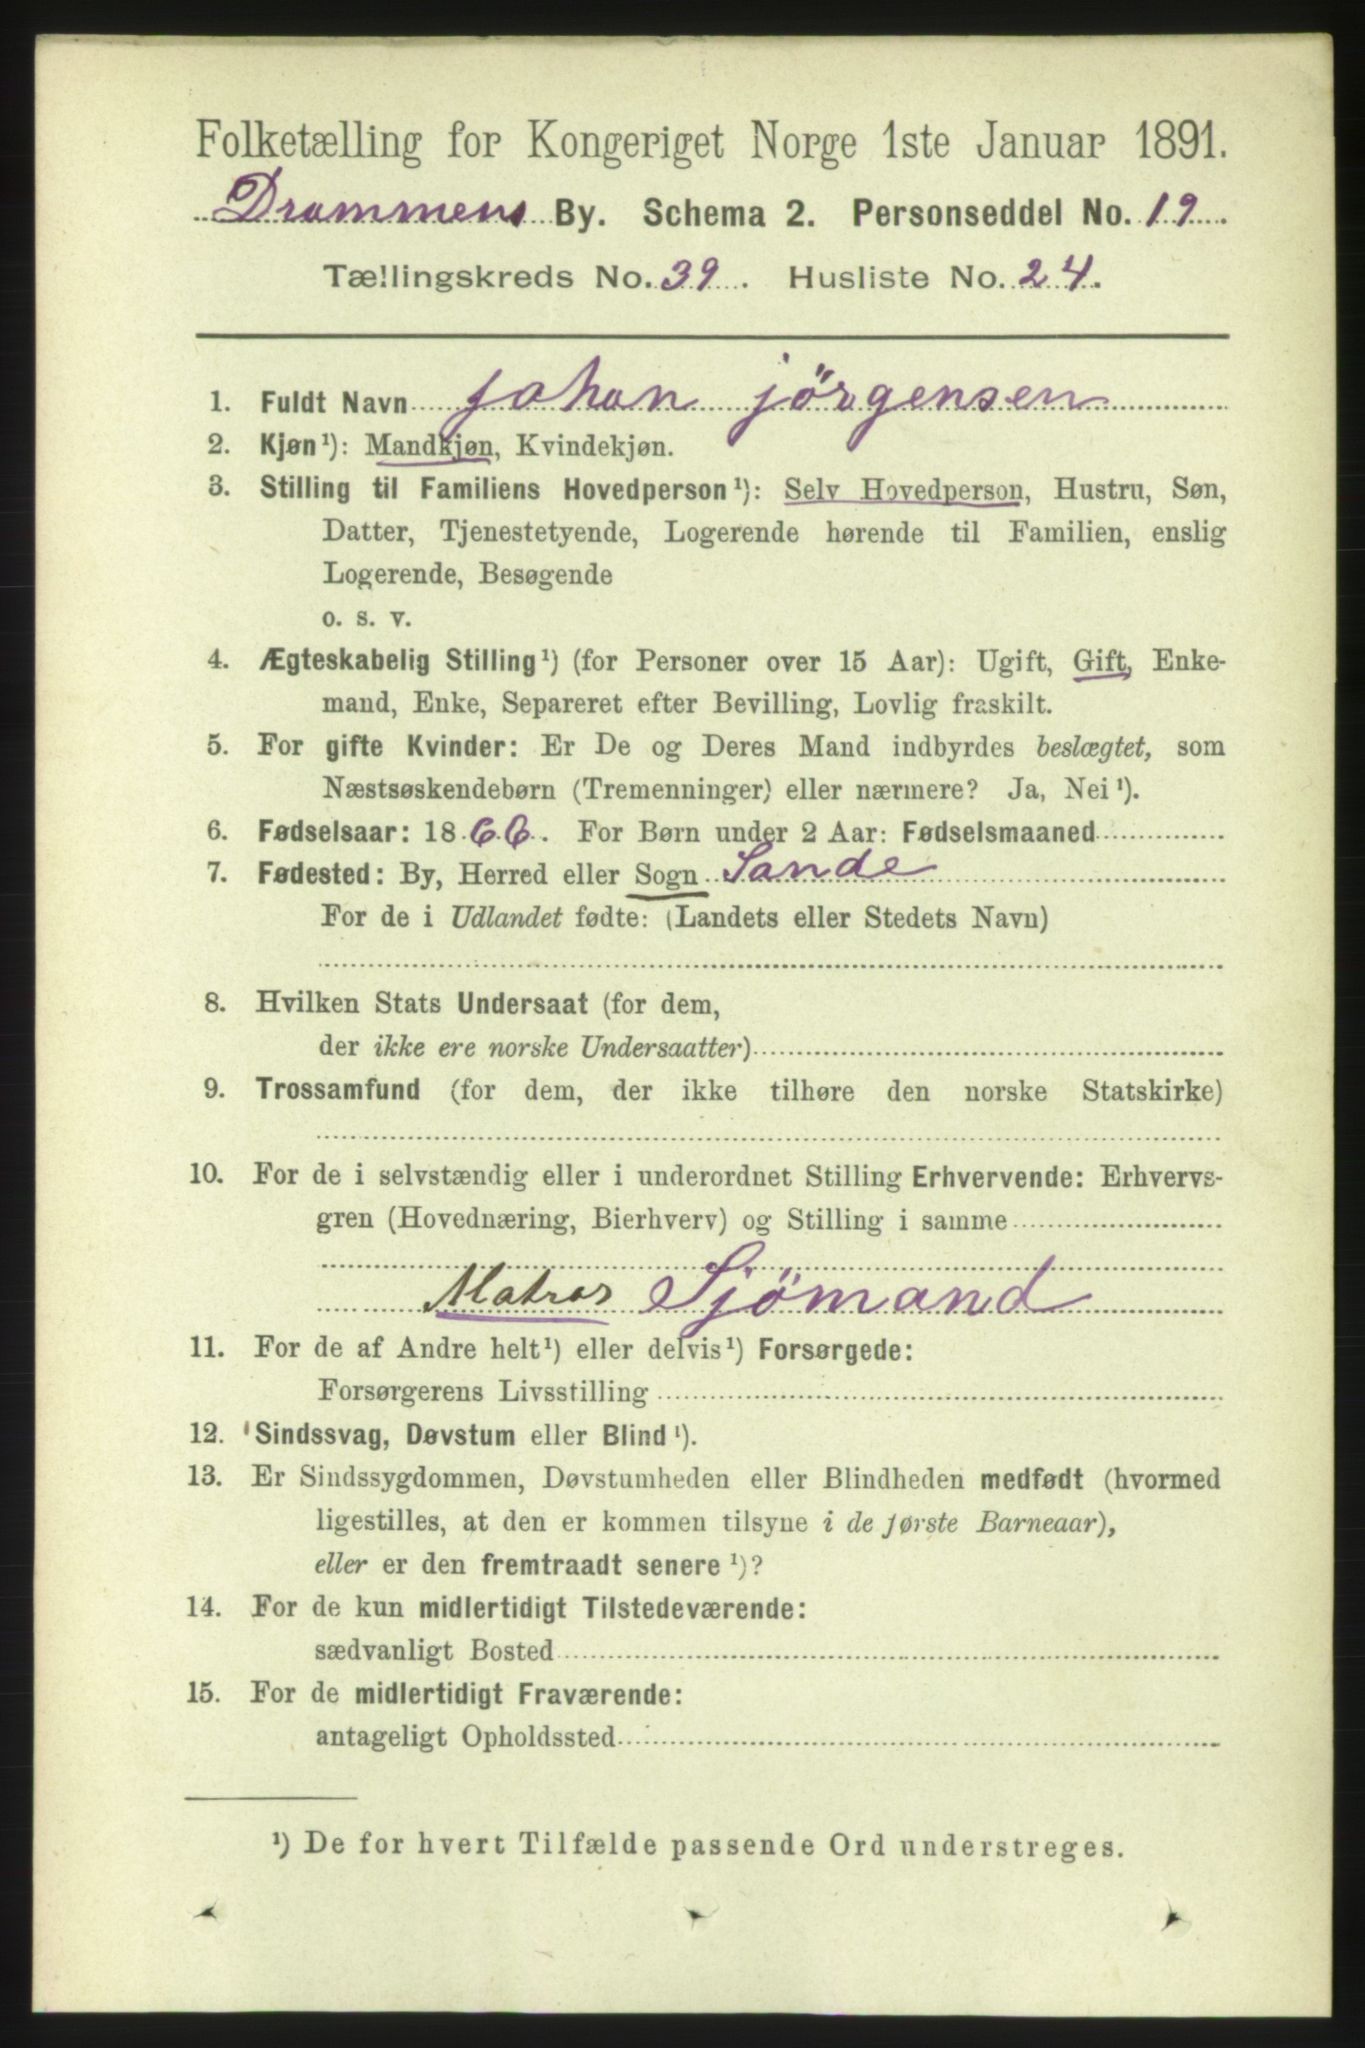 Folketælling for Kongeriget Norge 1ste Januar 1891.
Drammens By. Schema 2. Personseddel No. 19.
Tællingskreds No. 39. Husliste No. 24.
1. Fuldt Navn Johan Jörgensen
2. Kjøn¹): Mandkjøn, Kvindekjøn.
3. Stilling til Familiens Hovedperson¹): Selv Hovedperson, Hustru, Søn,
Datter, Tjenestetyende, Logerende hørende til Familien, enslig
Logerende, Besøgende
o. s. v.
4. Ægteskabelig Stilling¹) (for Personer over 15 Aar): Ugift, Gift, Enke-
mand, Enke, Separeret efter Bevilling, Lovlig fraskilt.
5. For gifte Kvinder: Er De og Deres Mand indbyrdes beslægtet, som
Næstsøskendebørn (Tremenninger) eller nærmere? Ja, Nei¹).
6. Fødselsaar: 1866. For Børn under 2 Aar: Fødselsmaaned
7. Fødested: By, Herred eller Sogn Sande
For de i Udlandet fødte: (Landets eller Stedets Navn)
8. Hvilken Stats Undersaat (for dem,
der ikke ere norske Undersaatter)
9. Trossamfund (for dem, der ikke tilhøre den norske Statskirke)
10. For de i selvstændig eller i underordnet Stilling Erhvervende: Erhvervs-
gren (Hovednæring, Bierhverv) og Stilling i samme
Matros Sjömand
11. For de af Andre helt¹) eller delvis¹) Forsørgede:
Forsørgerens Livsstilling
12. Sindssvag, Døvstum eller Blind¹).
13. Er Sindssygdommen, Døvstumheden eller Blindheden medfødt (hvormed
ligestilles, at den er kommen tilsyne i de første Barneaar),
eller er den fremtraadt senere¹)?
14. For de kun midlertidigt Tilstedeværende:
sædvanligt Bosted
15. For de midlertidigt Fraværende:
antageligt Opholdssted
¹) De for hvert Tilfælde passende Ord understreges.